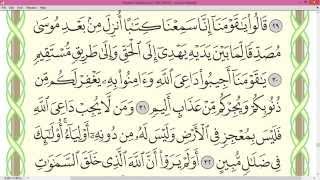 ٢٩ قَالُوا۟ يَـٰقَوْمَنَآ إِنَّا سَمِعْنَا كِتَـٰبًا أُنزِلَ مِنۢ بَعْدِ مُوسَىٰ
مُصَدِّقًا لِّمَا بَيْنَ يَدَيْهِ يَهْدِىٓ إِلَى ٱلْحَقِّ وَإِلَىٰ طَرِيقٍ مُّسْتَقِيمٍ
٣٠ يَـٰقَوْمَنَآ أَجِيبُوا۟ دَاعِىَ ٱللَّهِ وَءَامِنُوا۟ بِهِۦ يَغْفِرْ لَكُم مِّن
ذُنُوبِكُمْ وَيُجِرْكُم مِّنْ عَذَابٍ أَلِيمٍ ٣١ وَمَن لَّا يُجِبْ دَاعِىَ ٱللَّهِ
فَلَيْسَ بِمُعْجِزٍ فِى ٱلْأَرْضِ وَلَيْسَ لَهُۥ مِن دُونِهِۦٓ أَوْلِيَآءُ ۚ أُو۟لَـٰٓئِكَ
فِى ضَلَـٰلٍ مُّبِينٍ ٣٢ أَوَلَمْ يَرَوْا۟ أَنَّ ٱللَّهَ ٱلَّذِى خَلَقَ ٱلسَّمَـٰوَٰتِ